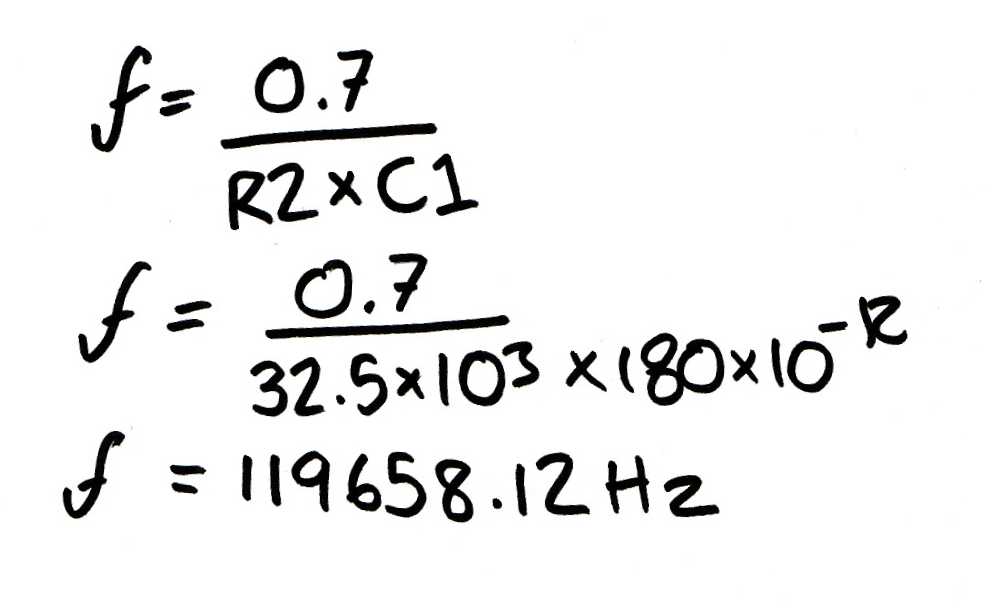 f = 0.7
R2 × C1
f = 0.7
32.5×10³ × 180×10⁻¹²
f = 119658.12 Hz